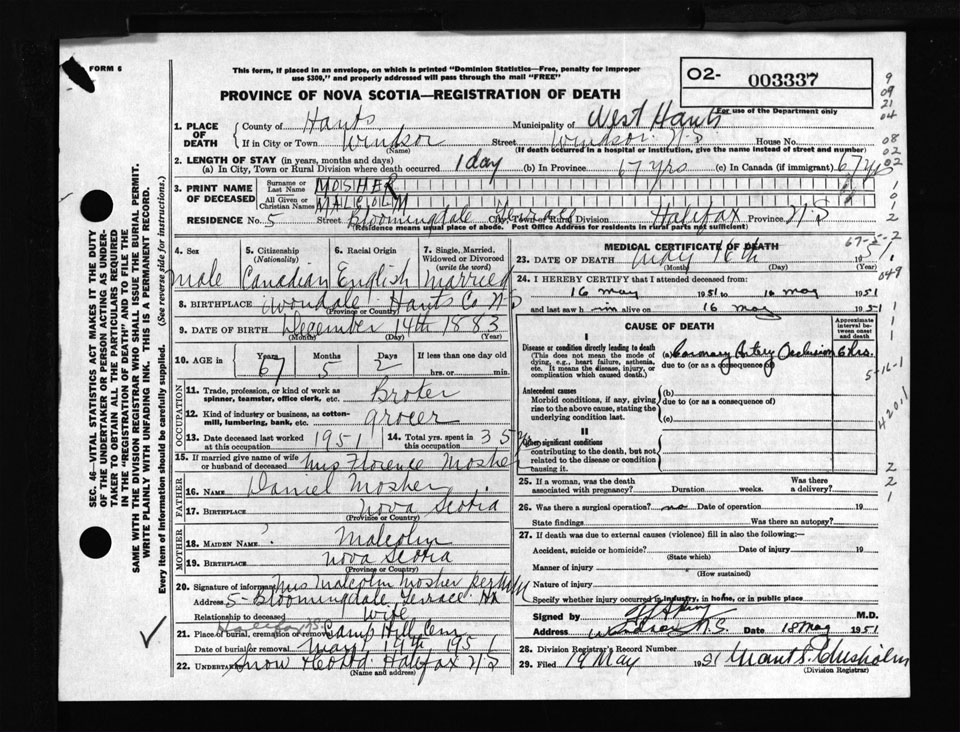 FORM 6
This form, if placed in an envelope, on which is printed "Dominion Statistics—Free, penalty for improper
use $300," and properly addressed will pass through the mail "FREE"
O2- 003337
For use of the Department only
PROVINCE OF NOVA SCOTIA—REGISTRATION OF DEATH
1. PLACE OF DEATH
County of Hants Municipality of West Hants
If in City or Town Windsor Street Windsor N.S House No.
(Name) (If death occurred in a hospital or institution, give the name instead of street and number)
2. LENGTH OF STAY (in years, months and days)
(a) In City, Town or Rural Division where death occurred 1 day (b) In Province 67 yrs (c) In Canada (if immigrant) 67 yrs
3. PRINT NAME OF DECEASED
Surname or Last Name MOSHER
All Given or Christian Names MALCOLM
RESIDENCE No. 5 Street Bloomingdale Terrace City, Town or Rural Division Halifax Province N S
(Residence means usual place of abode. Post Office Address for residents in rural parts not sufficient)
4. Sex male
5. Citizenship (Nationality) Canadian
6. Racial Origin English
7. Single, Married, Widowed or Divorced (write the word) Married
8. BIRTHPLACE Avondale Hants Co N.S
(Province or Country)
9. DATE OF BIRTH December 14th 1883
(Month) (Day) (Year)
10. AGE in Years 67 Months 5 Days 2 If less than one day old
hrs. or min.
OCCUPATION
11. Trade, profession, or kind of work as spinner, teamster, office clerk, etc. Broker
12. Kind of industry or business, as cotton-mill, lumbering, bank, etc. grocer
13. Date deceased last worked at this occupation 1951 14. Total yrs. spent in this occupation 35
15. If married give name of wife or husband of deceased Mrs Florence Mosher
FATHER
16. NAME Daniel Mosher
17. BIRTHPLACE Nova Scotia
(Province or Country)
MOTHER
18. MAIDEN NAME ? Malcolm
19. BIRTHPLACE Nova Scotia
(Province or Country)
20. Signature of informant Mrs Malcolm Mosher per
Address 5 Bloomingdale Terrace Hx
Relationship to deceased Wife
21. Place of burial, cremation or removal Halifax N.S. Camp Hill Cem
Date of burial or removal May 19th 1951
22. Undertaker Snow & Co Ltd. Halifax N S
(Name and address)
MEDICAL CERTIFICATE OF DEATH
23. DATE OF DEATH May 16th 1951
(Month) (Day) (Year)
24. I HEREBY CERTIFY that I attended deceased from:
16 May 1951 to 16 May 1951
and last saw him alive on 16 May 1951
CAUSE OF DEATH
Approximate interval between onset and death
I
Disease or condition directly leading to death
(This does not mean the mode of dying, e.g., heart failure, asthenia, etc. It means the disease, injury, or complication which caused death.)
(a) Coronary Artery Occlusion 6 hrs.
due to (or as a consequence of)
Antecedent causes
Morbid conditions, if any, giving rise to the above cause, stating the underlying condition last.
(b)
due to (or as a consequence of)
(c)
II
Other significant conditions
contributing to the death, but not related to the disease or condition causing it.
25. If a woman, was the death associated with pregnancy? Duration weeks. Was there a delivery?
26. Was there a surgical operation? no Date of operation 19
State findings Was there an autopsy?
27. If death was due to external causes (violence) fill in also the following:—
Accident, suicide or homicide? Date of injury 19
(State which)
Manner of injury
(How sustained)
Nature of injury
Specify whether injury occurred in industry, in home, or in public place
Signed by M.D.
Address Windsor N.S. Date 18 May 1951
28. Division Registrar's Record Number
29. Filed 19 May 1951 Grant S. Chisholm
(Division Registrar)
SEC. 46—VITAL STATISTICS ACT MAKES IT THE DUTY
OF THE UNDERTAKER OR PERSON ACTING AS UNDER-
TAKER TO OBTAIN ALL THE PARTICULARS REQUIRED
IN THE "REGISTRATION OF DEATH" AND TO FILE THE
SAME WITH THE DIVISION REGISTRAR WHO SHALL ISSUE THE BURIAL PERMIT.
WRITE PLAINLY WITH UNFADING INK. THIS IS A PERMANENT RECORD.
Every item of information should be carefully supplied. (See reverse side for instructions.)
9
09
21
04
08
02
02
1
0
1
2
67-5-2
049
1
1
1
1
5-16-1
420.1
2
2
1